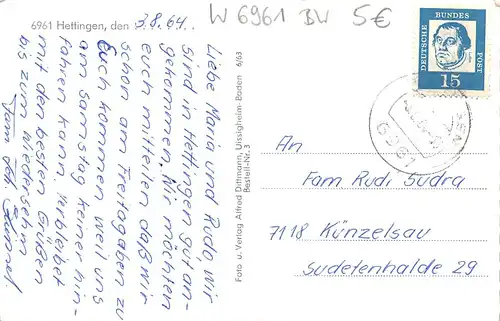 W 6961 BW 5€
6961 Hettingen, den 3.8.64.
Liebe Maria und Rudo, wir
sind in Hettingen gut an-
gekommen. Wir möchten
euch mitteilen daß wir
schon am Freitagaben zu
Euch kommen weil uns
am Samstag keiner hin-
fahren kann. Verbleibet
mit den besten Grüßen
bis zum Wiedersehn
Fam.
Foto u. Verlag Alfred Dittmann, Uissigheim-Baden 6/63
Bestell-Nr. 3
DEUTSCHE BUNDES POST
15
6961
An
Fam Rudi Sudra
7118 Künzelsau
Sudetenhalde 29